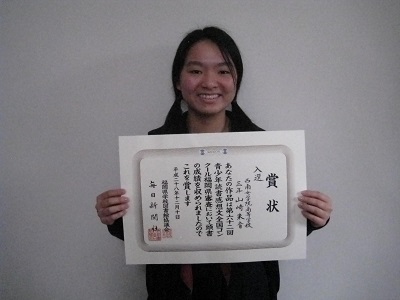 賞状
入選
西南女学院高等学校
三年 山崎 来音
あなたの作品は第六十二回
青少年読書感想文全国コン
クール福岡県審査において頭書
の成績を収められましたので
これを賞します
平成二十八年十二月十日
福岡県学校図書館協議会
毎日新聞社